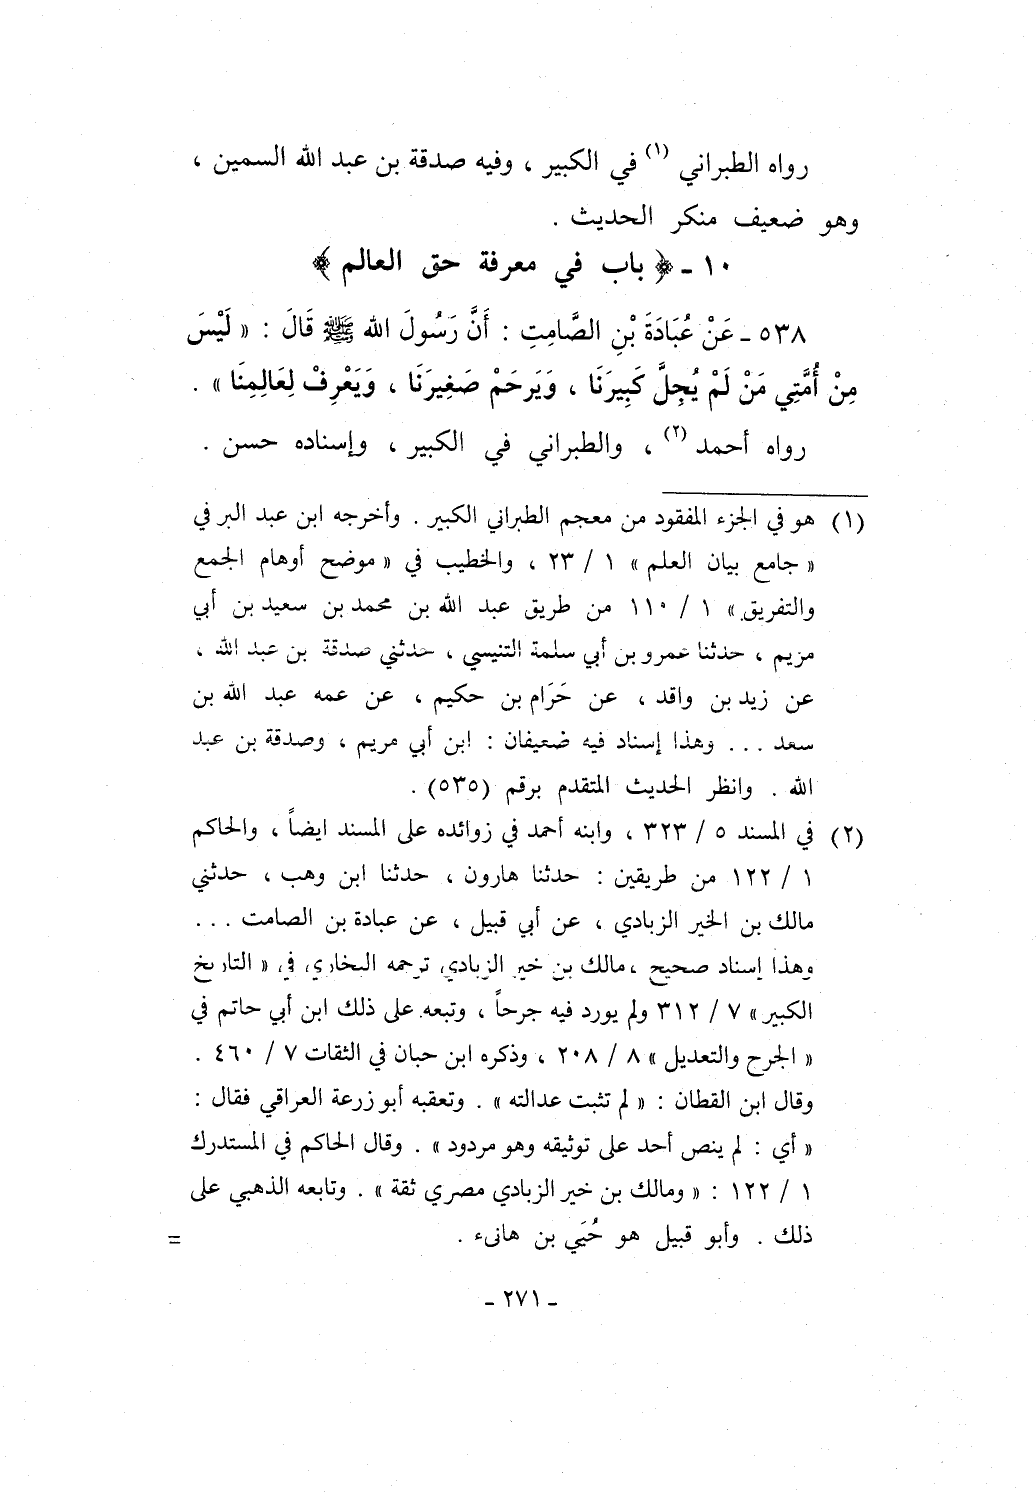 رواه الطبراني (١) في الكبير ، وفيه صدقة بن عبد الله السمين ،
وهو ضعيف منكر الحديث .
١٠ ـ ﴿ باب في معرفة حق العالم ﴾
٥٣٨ ـ عَنْ عُبَادَةَ بْنِ الصَّامِتِ : أَنَّ رَسُولَ الله ﷺ قَالَ : « لَيْسَ
مِنْ أُمَّتِي مَنْ لَمْ يُجِلَّ كَبِيرَنَا ، وَيَرحَمْ صَغِيرَنَا ، وَيَعْرِفْ لِعَالِمِنَا » .
رواه أحمد (٢) ، والطبراني في الكبير ، وإسناده حسن .
(١) هو في الجزء المفقود من معجم الطبراني الكبير . وأخرجه ابن عبد البر في
« جامع بيان العلم » ١ / ٢٣ ، والخطيب في « موضح أوهام الجمع
والتفريق » ١ / ١١٠ من طريق عبد الله بن محمد بن سعيد بن أبي
مريم ، حدثنا عمرو بن أبي سلمة التنيسي ، حدثني صدقة بن عبد الله ،
عن زيد بن واقد ، عن حَرَام بن حكيم ، عن عمه عبد الله بن
سعد ... وهذا إسناد فيه ضعيفان : ابن أبي مريم ، وصدقة بن عبد
الله . وانظر الحديث المتقدم برقم (٥٣٥) .
(٢) في المسند ٥ / ٣٢٣ ، وابنه أحمد في زوائده على المسند ايضاً ، والحاكم
١ / ١٢٢ من طريقين : حدثنا هارون ، حدثنا ابن وهب ، حدثني
مالك بن الخير الزبادي ، عن أبي قبيل ، عن عبادة بن الصامت ...
وهذا إسناد صحيح ، مالك بن خير الزبادي ترجمه البخاري في « التاريخ
الكبير » ٧ / ٣١٢ ولم يورد فيه جرحاً ، وتبعه على ذلك ابن أبي حاتم في
« الجرح والتعديل » ٨ / ٢٠٨ ، وذكره ابن حبان في الثقات ٧ / ٤٦٠ .
وقال ابن القطان : « لم تثبت عدالته » . وتعقبه أبو زرعة العراقي فقال :
« أي : لم ينص أحد على توثيقه وهو مردود » . وقال الحاكم في المستدرك
١ / ١٢٢ : « ومالك بن خير الزبادي مصري ثقة » . وتابعه الذهبي على
ذلك . وأبو قبيل هو حُيَي بن هانىء . =
ـ ٢٧١ ـ